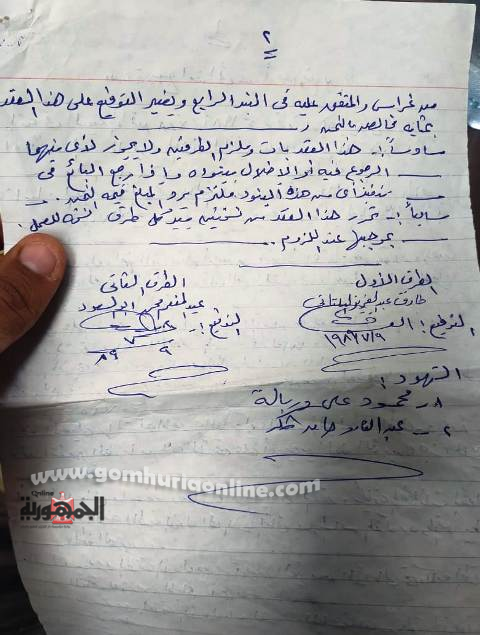 ٢
من غراس والمتفق عليه في البند الرابع ويعتبر التوقيع على هذا العقد
بمثابة مخالصة بالثمن
سادساً :- هذا العقد بات وملزم لطرفيه ولا يجوز لأي منهما
الرجوع فيه أو الإخلال ببنوده وإذا رجع البائع في
تنفيذ أي من هذه البنود فيلتزم برد المبلغ قيمة الثمن
سابعاً :- تحرر هذا العقد من نسختين بيد كل طرف نسخة للعمل
بموجبها عند اللزوم
الطرف الأول
طارق عبد العزيز
التوقيع :
١٩٨٩/٧/٩
الطرف الثاني
عبد المنعم أبو السعود
التوقيع :-
٩/٧/٨٩
الشهود :
١- محمود على
٢- عبد القادر حامد
www.gomhuriaonline.com
Online
الجمهورية